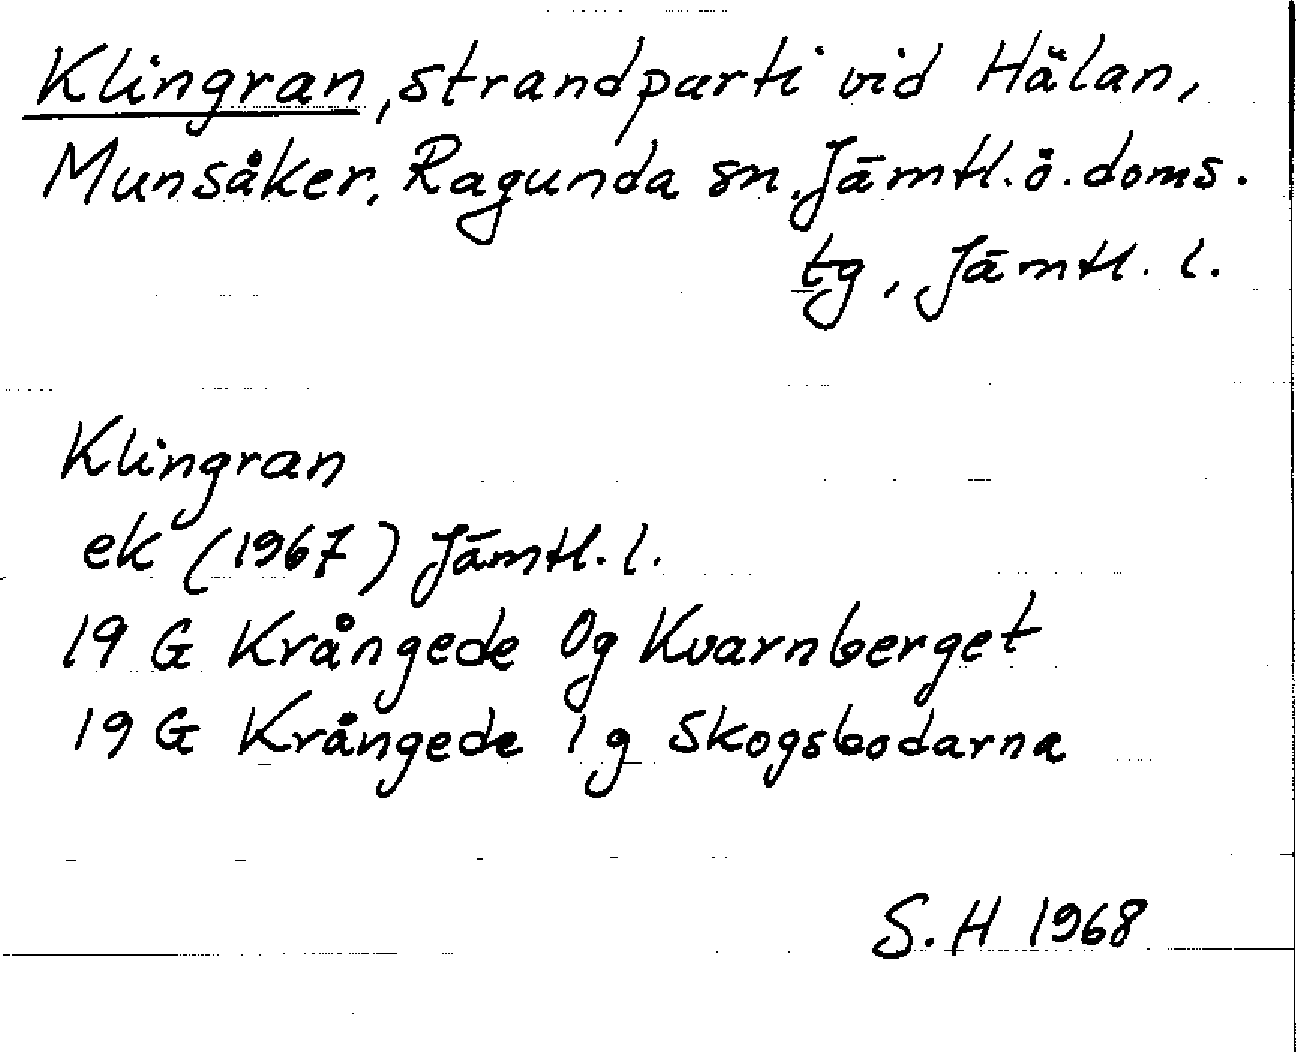 Klingran, strandparti vid Hälan,
Munsåker, Ragunda sn, Jämtl. ö. doms.
tg, Jämtl. l.
Klingran
ek (1967) Jämtl. l.
19 G Krångede 0g Kvarnberget
19 G Krångede 1g Skogsbodarna
S. H 1968